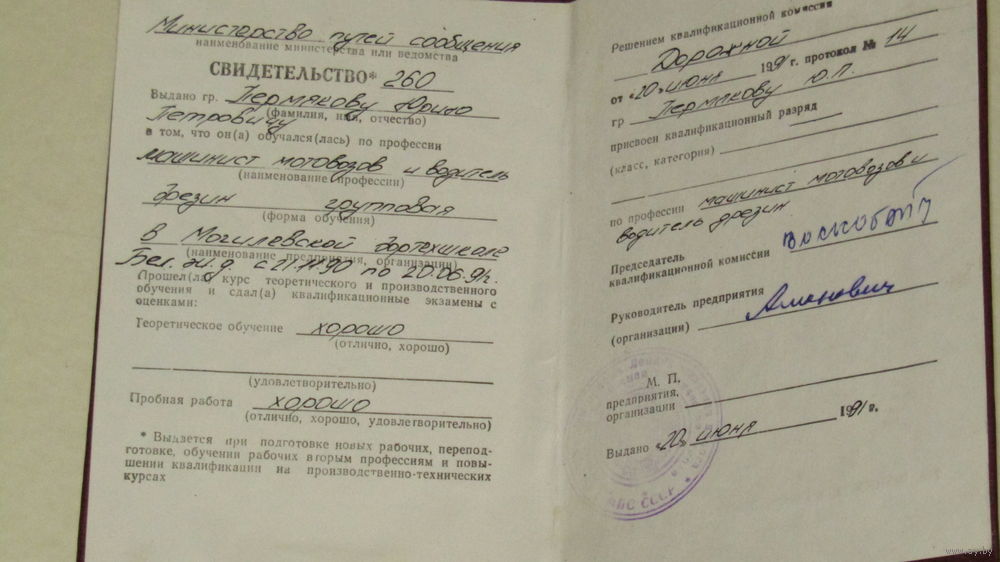 Министерство путей сообщения
наименование министерства или ведомства
СВИДЕТЕЛЬСТВО* 260
Выдано гр. Пермякову Юрию
(фамилия, имя, отчество)
Петровичу
в том, что он(а) обучался(лась) по профессии
машинист мотовозов и водитель
(наименование профессии)
дрезин групповая
(форма обучения)
в Могилевской дортехшколе
(наименование предприятия, организации)
Бел. ж. д. с 21.11.90 по 20.06.91г.
Прошел(ла) курс теоретического и производственного
обучения и сдал(а) квалификационные экзамены с
оценками:
Теоретическое обучение хорошо
(отлично, хорошо)
(удовлетворительно)
Пробная работа хорошо
(отлично, хорошо, удовлетворительно)
* Выдается при подготовке новых рабочих, перепод-
готовке, обучении рабочих вторым профессиям и повы-
шении квалификации на производственно-технических
курсах
Решением квалификационной комиссии
Дорожной
от «20» июня 1991 г. протокол № 14
гр Пермякову Ю.П.
присвоен квалификационный разряд
(класс, категория)
по профессии машинист мотовозов и
водитель дрезин
Председатель
квалификационной комиссии
Руководитель предприятия
(организации)
М. П.
предприятия,
организации
Выдано «20» июня 1991 г.
МПС СССР
www.ay.by